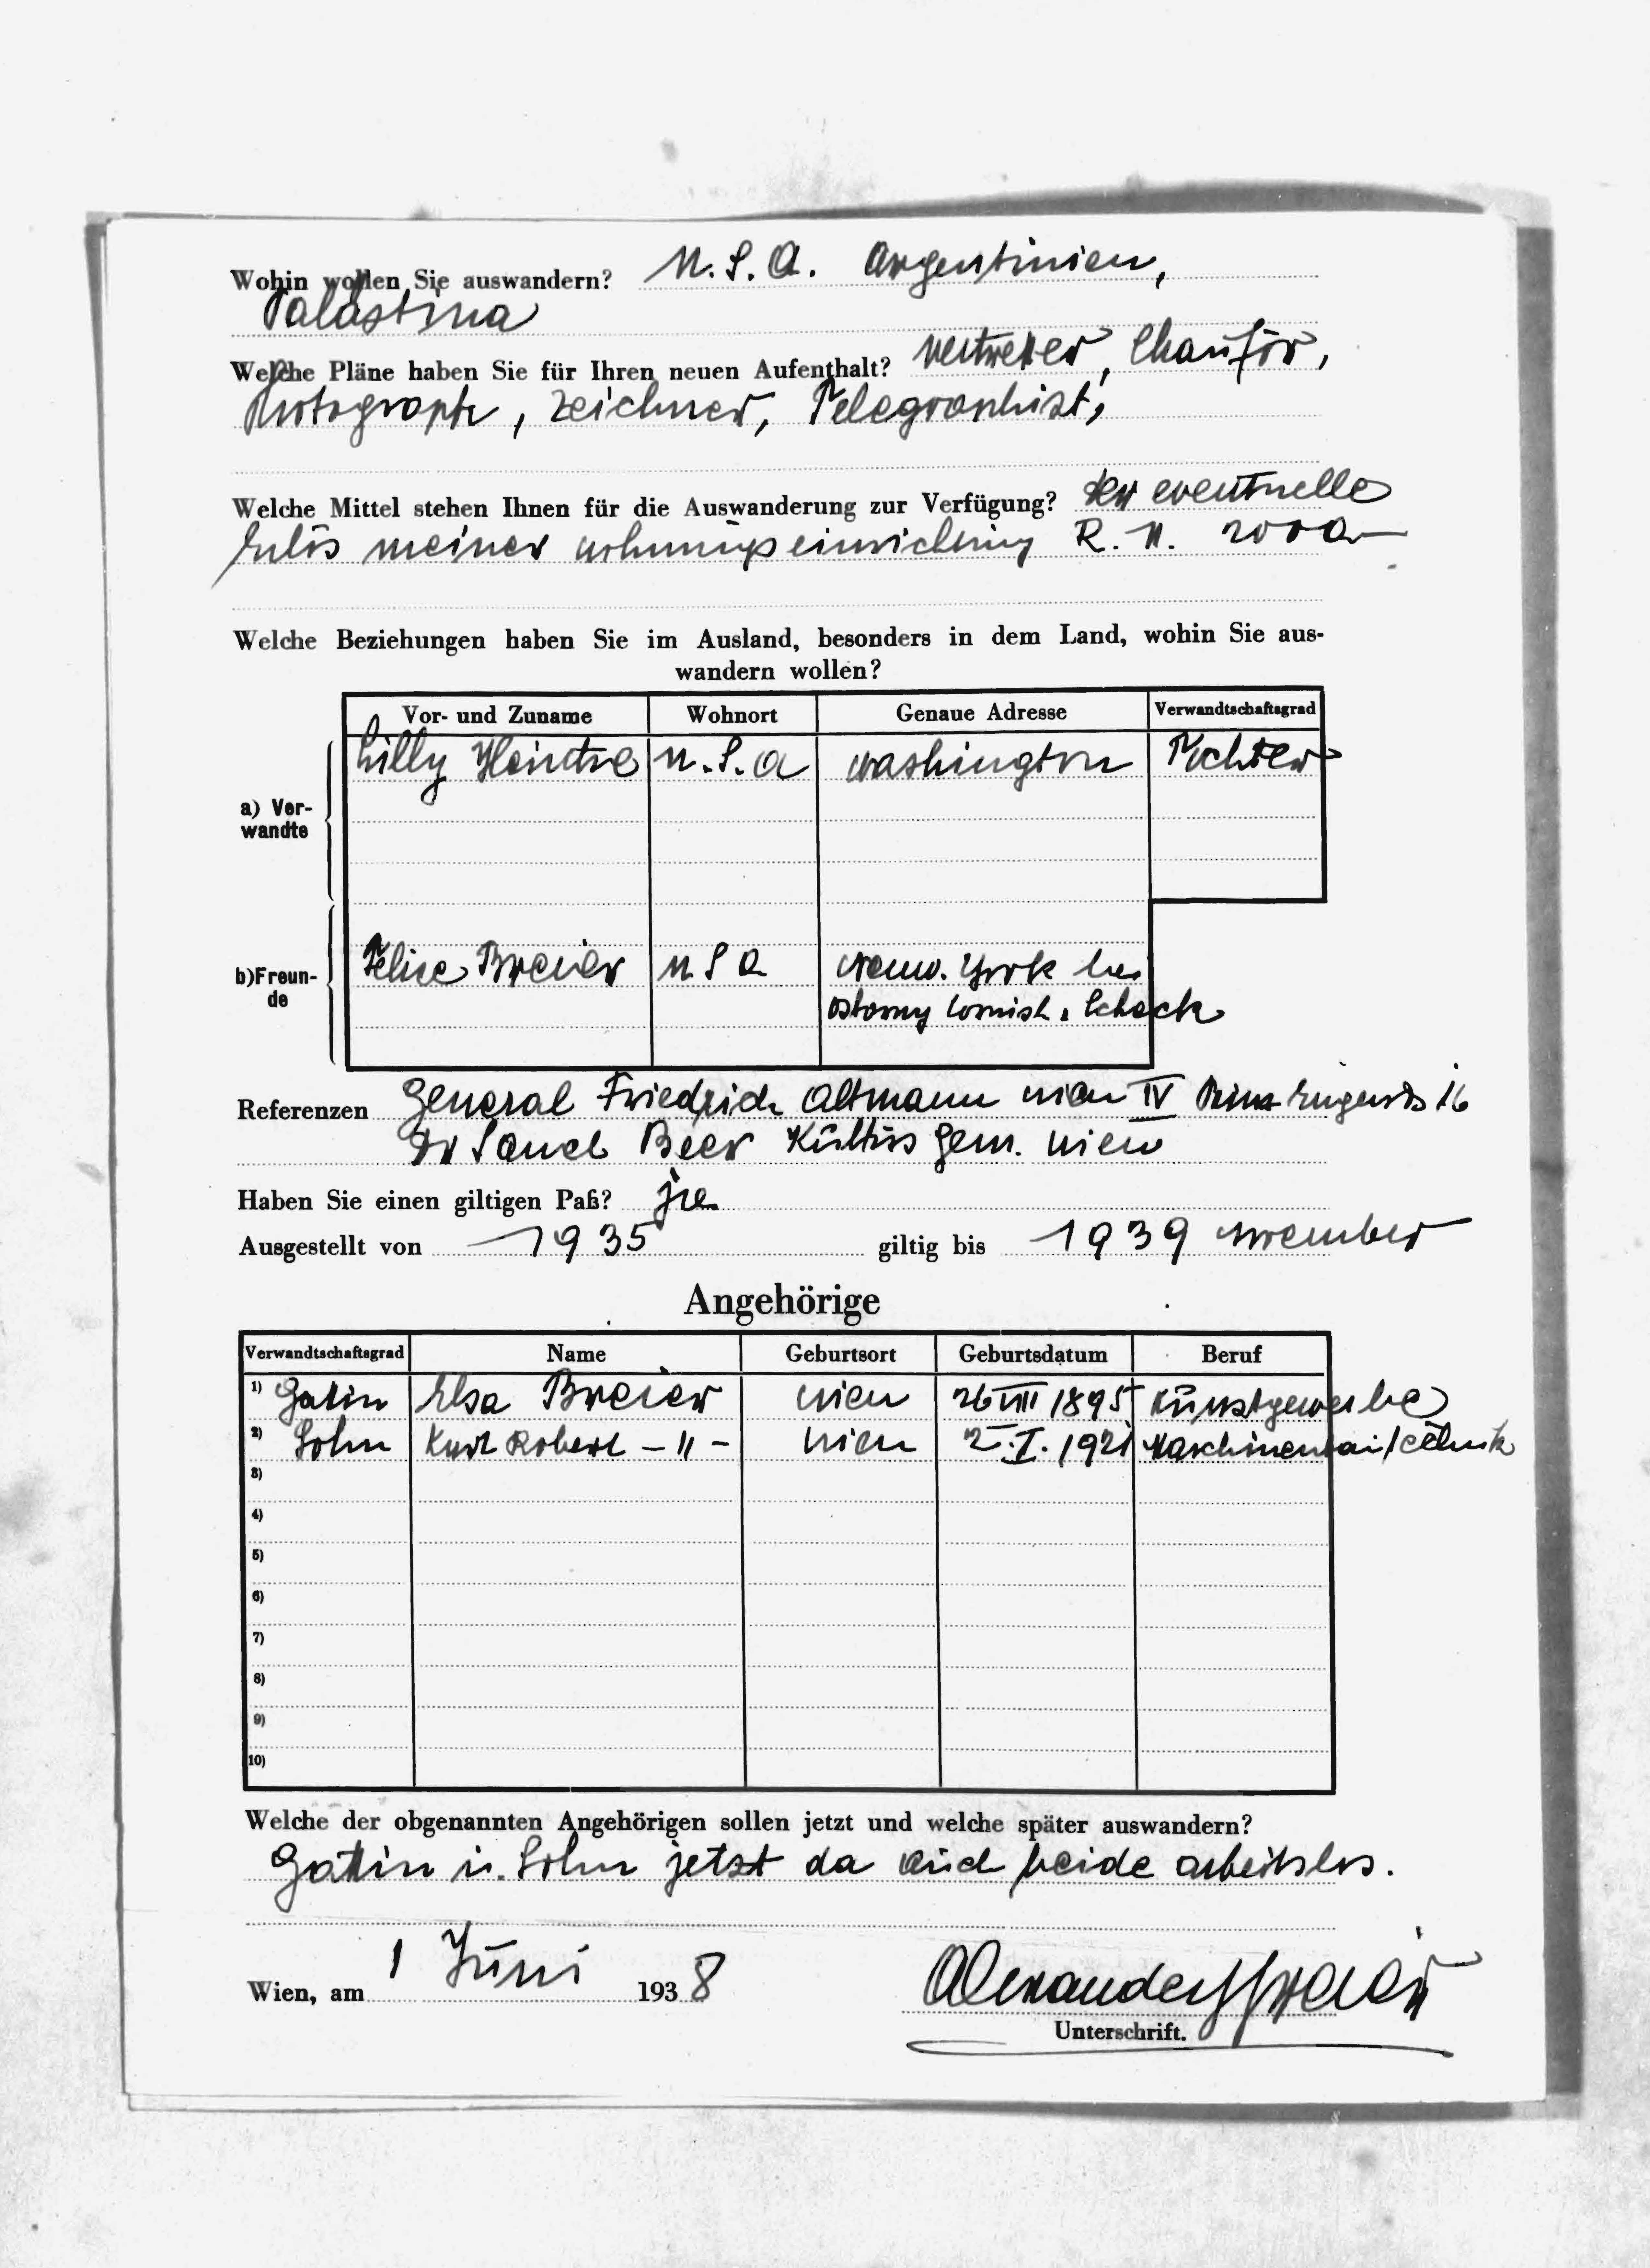 Wohin wollen Sie auswandern? U.S.A. Argentinien,
Palästina
Welche Pläne haben Sie für Ihren neuen Aufenthalt? Vertreter, Chauför,
Photograph, Zeichner, Telegraphist,
Welche Mittel stehen Ihnen für die Auswanderung zur Verfügung? Der eventuelle
Erlös meiner Wohnungseinrichtung R.M. 2000.—
Welche Beziehungen haben Sie im Ausland, besonders in dem Land, wohin Sie aus-
wandern wollen?
Vor- und Zuname Wohnort Genaue Adresse Verwandtschaftsgrad
a) Ver-
wandte
Lilly U.S.A Washington Tochter
b) Freun-
de
Felice Breier U S A New. York bei
Schack
Referenzen General Friedrich Altmann Wien IV Prinz Eugenstr 16
Dr Beer Kultus Gem. Wien
Haben Sie einen giltigen Paß? ja
Ausgestellt von 1935 giltig bis 1939 November
Angehörige
Verwandtschaftsgrad Name Geburtsort Geburtsdatum Beruf
1) Gattin Elsa Breier Wien 26 VIII 1895 Kunstgewerbe
2) Sohn Kurt Robert – " – Wien 2.I.1921
3)
4)
5)
6)
7)
8)
9)
10)
Welche der obgenannten Angehörigen sollen jetzt und welche später auswandern?
Gattin u. Sohn jetzt da auch beide arbeitslos.
Wien, am 1 Juni 1938 Alexander Breier
Unterschrift.